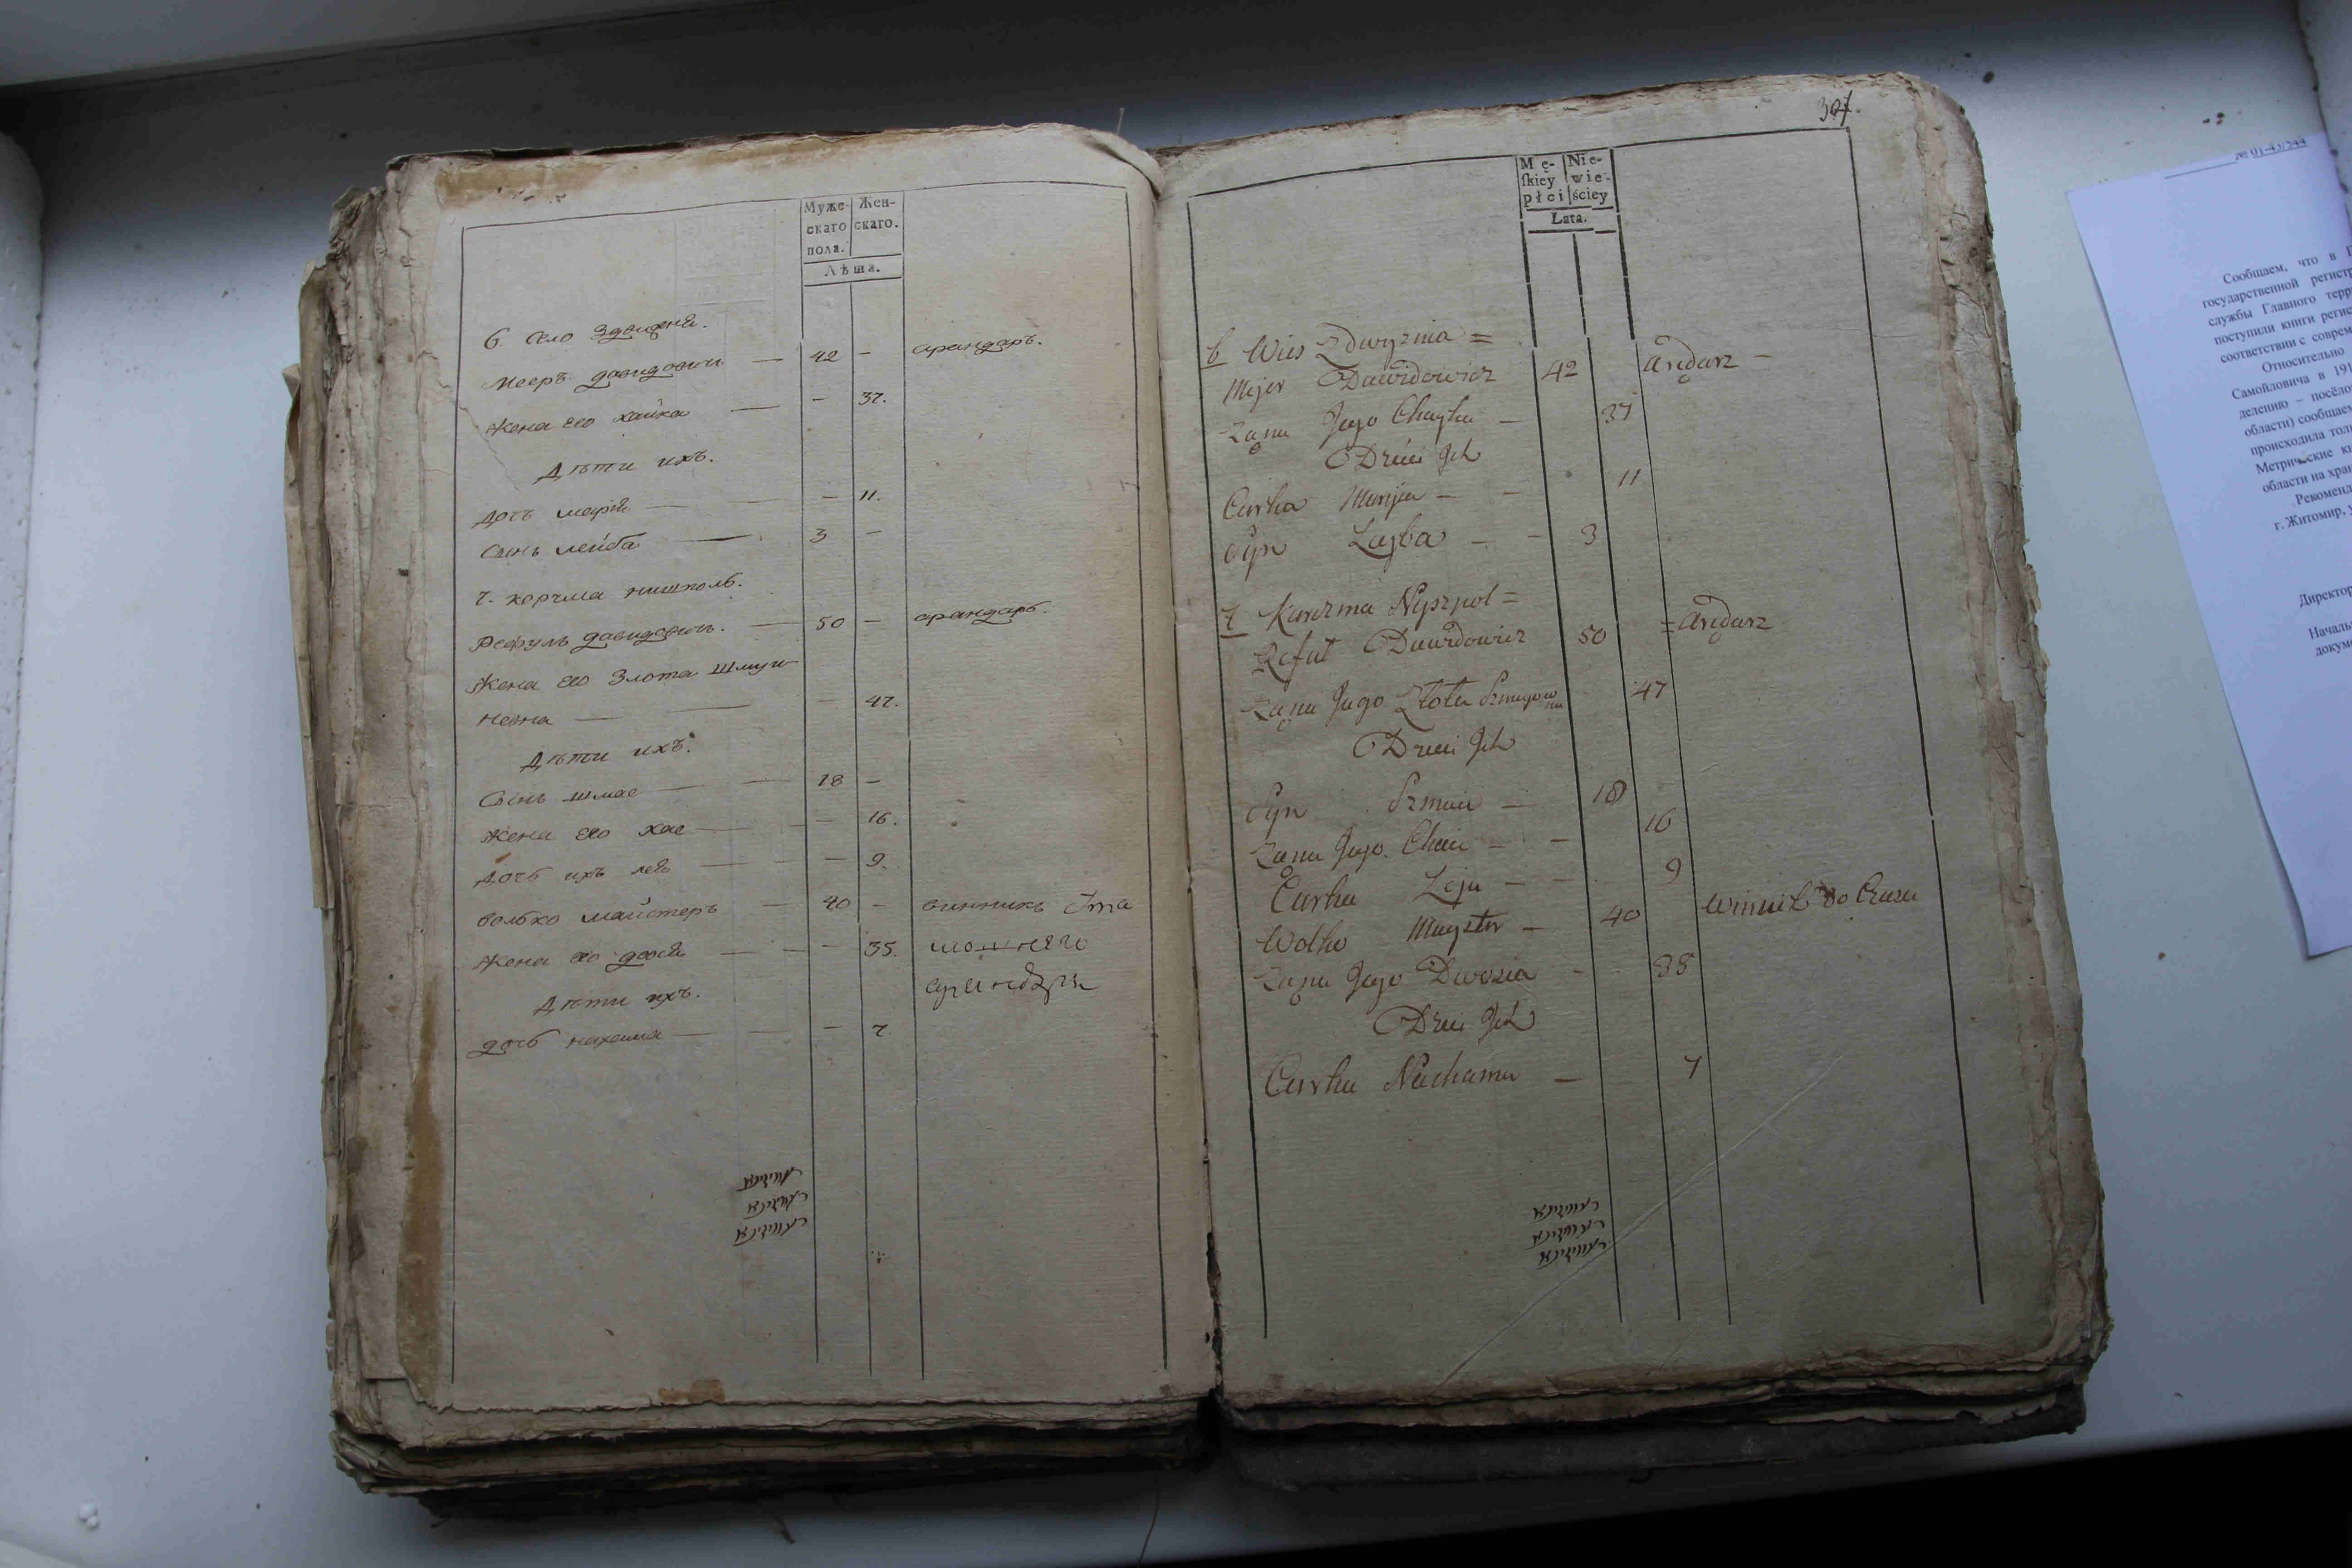 Муже-
скаго
пола.
Жен-
скаго.
Лѣта.
6. село Здвижня.
Мееръ давидовичъ — 42 — арандаръ.
жена его хайка — — 37.
Дѣти ихъ.
дочь марія — — 11.
сынъ лейба — 3 —
7. корчма нишполь.
Рефулъ давидовичъ. — 50 — арандаръ.
жена его Злота шмую
невна — — — 47.
Дѣти ихъ.
сынъ шмае — — 18 —
жена его хае — — 16.
дочь ихъ лея — — 9.
волько майстеръ — 40 — винникъ
жена его двося — — 35.
Дѣти ихъ.
дочь нахама — — — 7
307.
Mę-
skiey
płci
Nie-
wie-
ściey
Lata.
6 Wies Zdwyznia =
Mejer Dawidowicz 42 arędarz —
Ząna Jego Chayka — 37
Dzieci Jch
Curka Maryia — — 11
Syn Lejba — — 3
7 Karczma Nyszpol =
Refuł Dawidowicz 50 = arędarz
Ząna Jego Złota Szmujow
na 47
Dzieci Jch
Syn Szmaie — 18 —
Ząna Jego Chaie — — 16
Curka Leja — — 9
Wolko Mayster — 40 winnik do Czasu
Ząna Jego Dwosia — 35
Dzieci Jch
Curka Nachama — 7
№ 01-43/544
Сообщаем, что в
государственной регистр
службы Главного терр
поступили книги регис
соответствии с соврем
Относительно
Самойловича в 191
делению – посёло
области) сообщаем
происходила толь
Метрические к
области на хран
Рекоменд
г. Житомир, у
Директор
Началь
докум